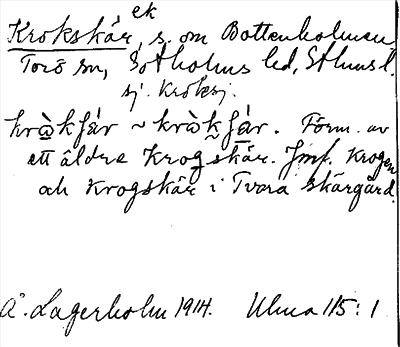 ek
Krokskär, s. om Bottenholmen
Torö sn, Sotholms hd, Sthms l.
sj. Kroksj.
kràkʃär ~ kràkʃär. Förm. av
ett äldre Krogskär. Jmf. Krogen
och Krogskär i Tvära skärgård.
Å. Lagerholm 1914. Ulma 115:1